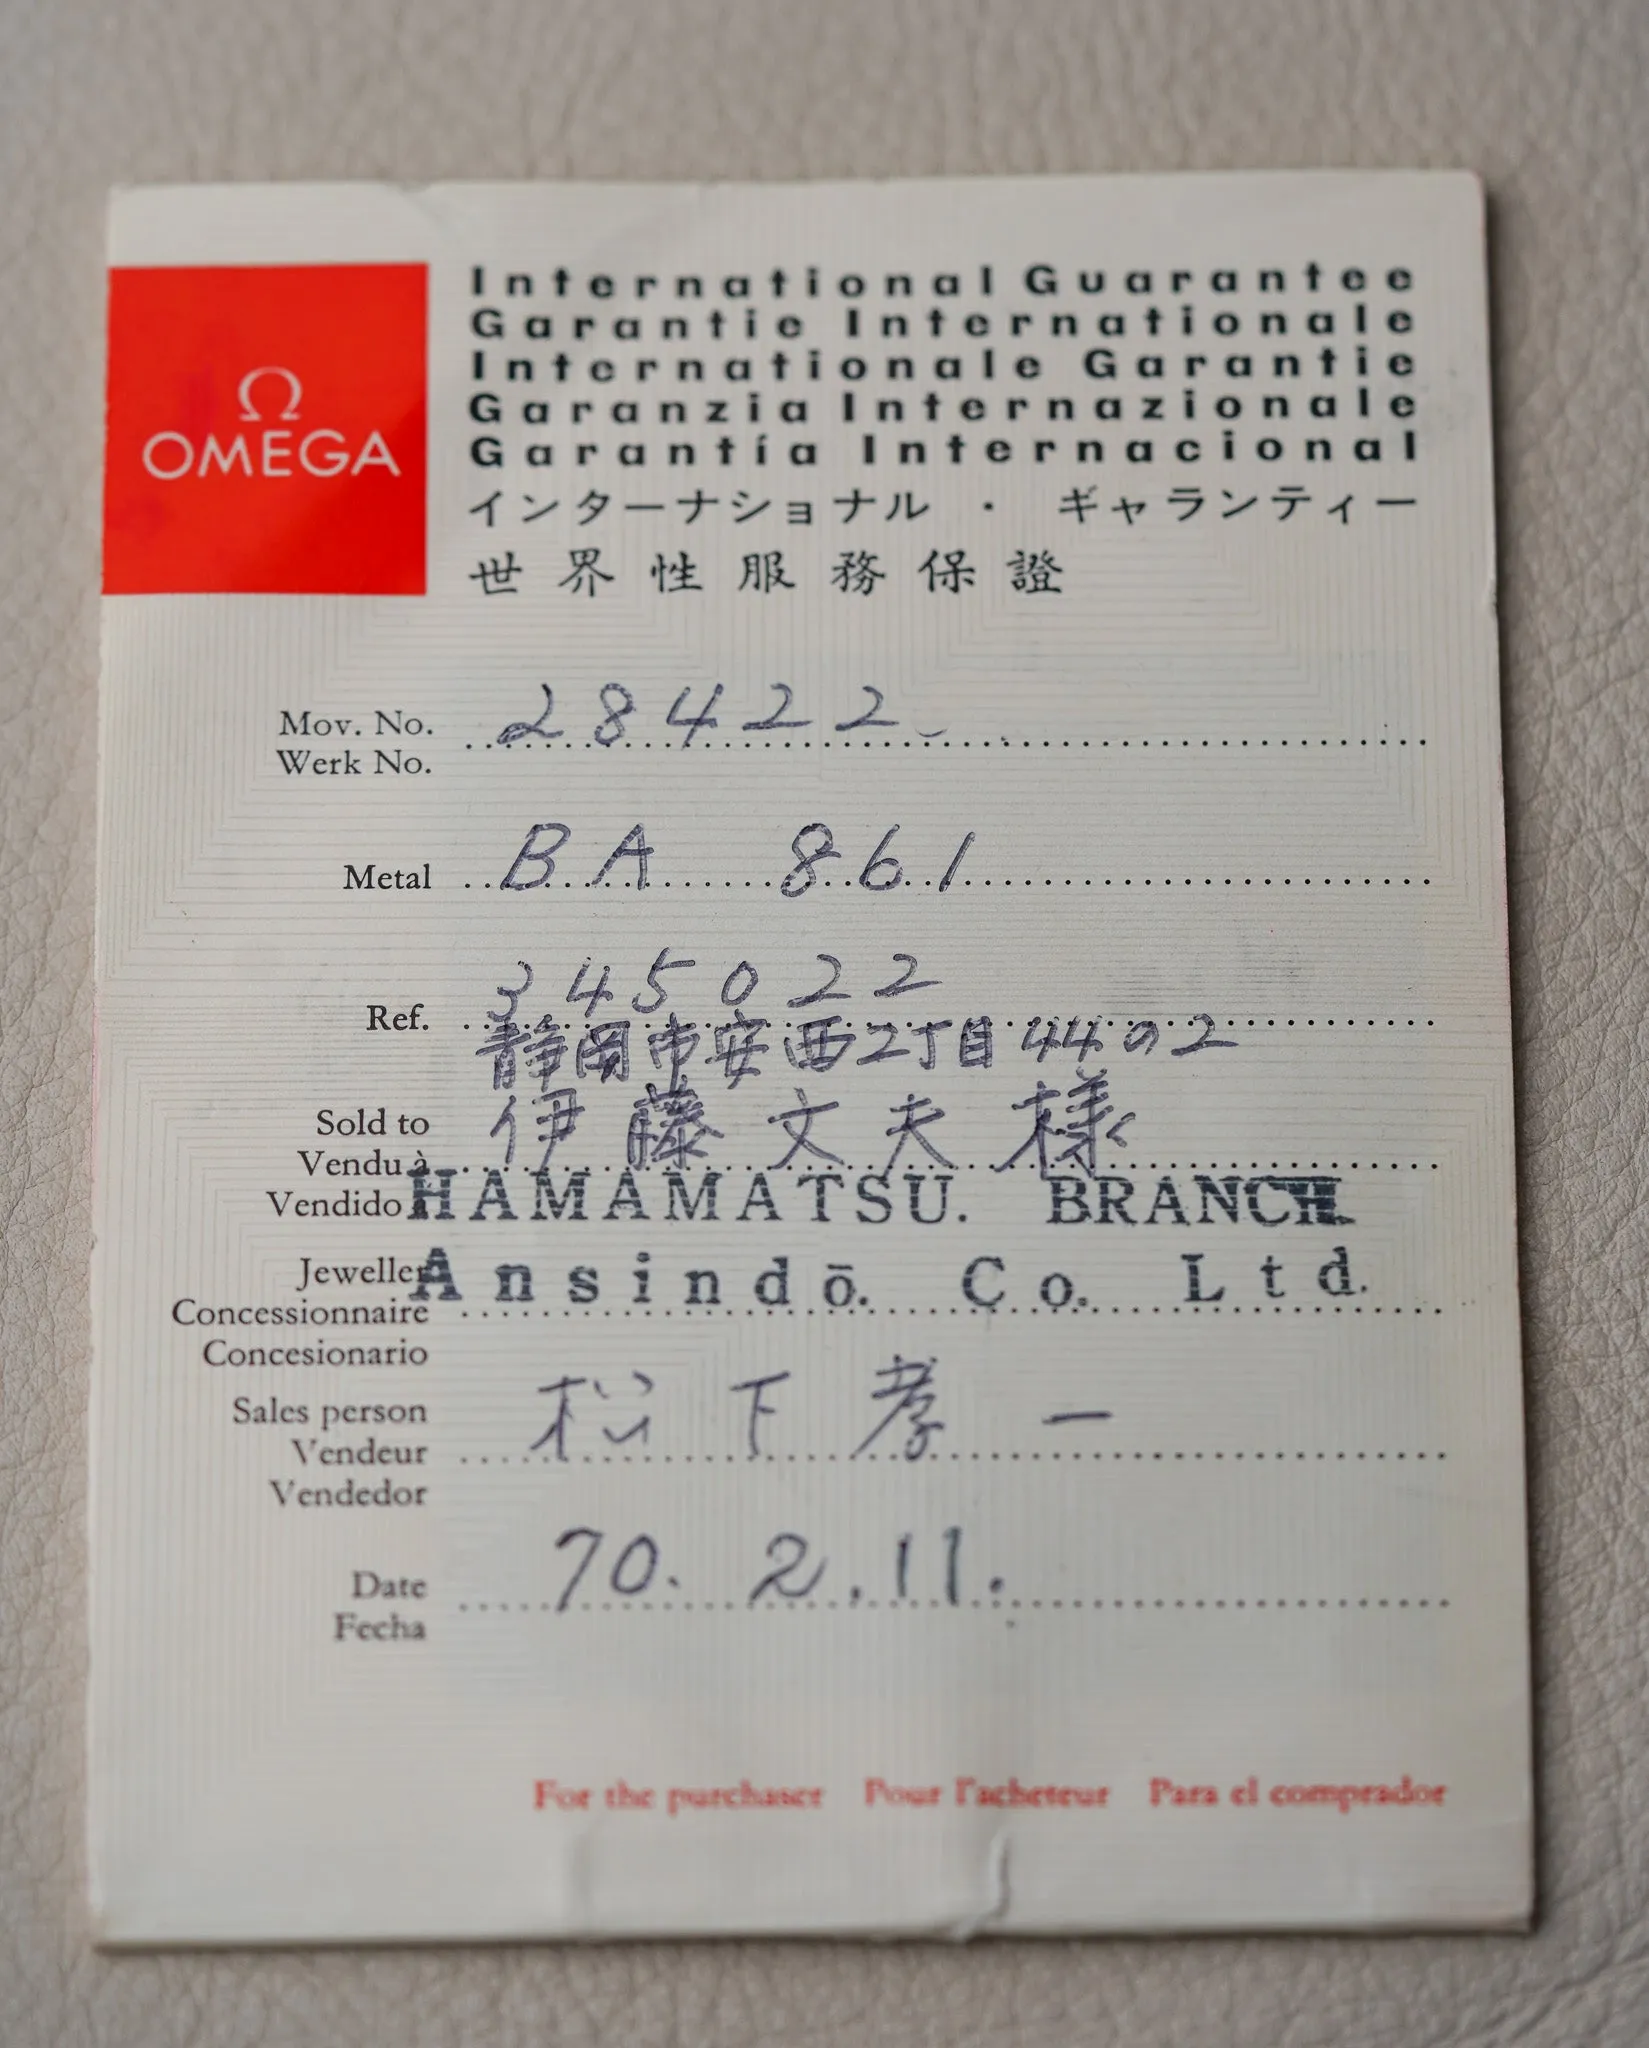 Ω
OMEGA
International Guarantee
Garantie Internationale
Internationale Garantie
Garanzia Internazionale
Garantía Internacional
インターナショナル ・ ギャランティー
世界性服務保證
Mov. No. 28422
Werk No.
Metal BA 861
Ref. 345022
静岡市安西2丁目44の2
Sold to 伊藤文夫様
Vendu à
Vendido HAMAMATSU. BRANCH
Jeweller Ansindō. Co. Ltd.
Concessionnaire
Concesionario
Sales person 松下孝一
Vendeur
Vendedor
Date 70. 2. 11.
Fecha
For the purchaser Pour l'acheteur Para el comprador